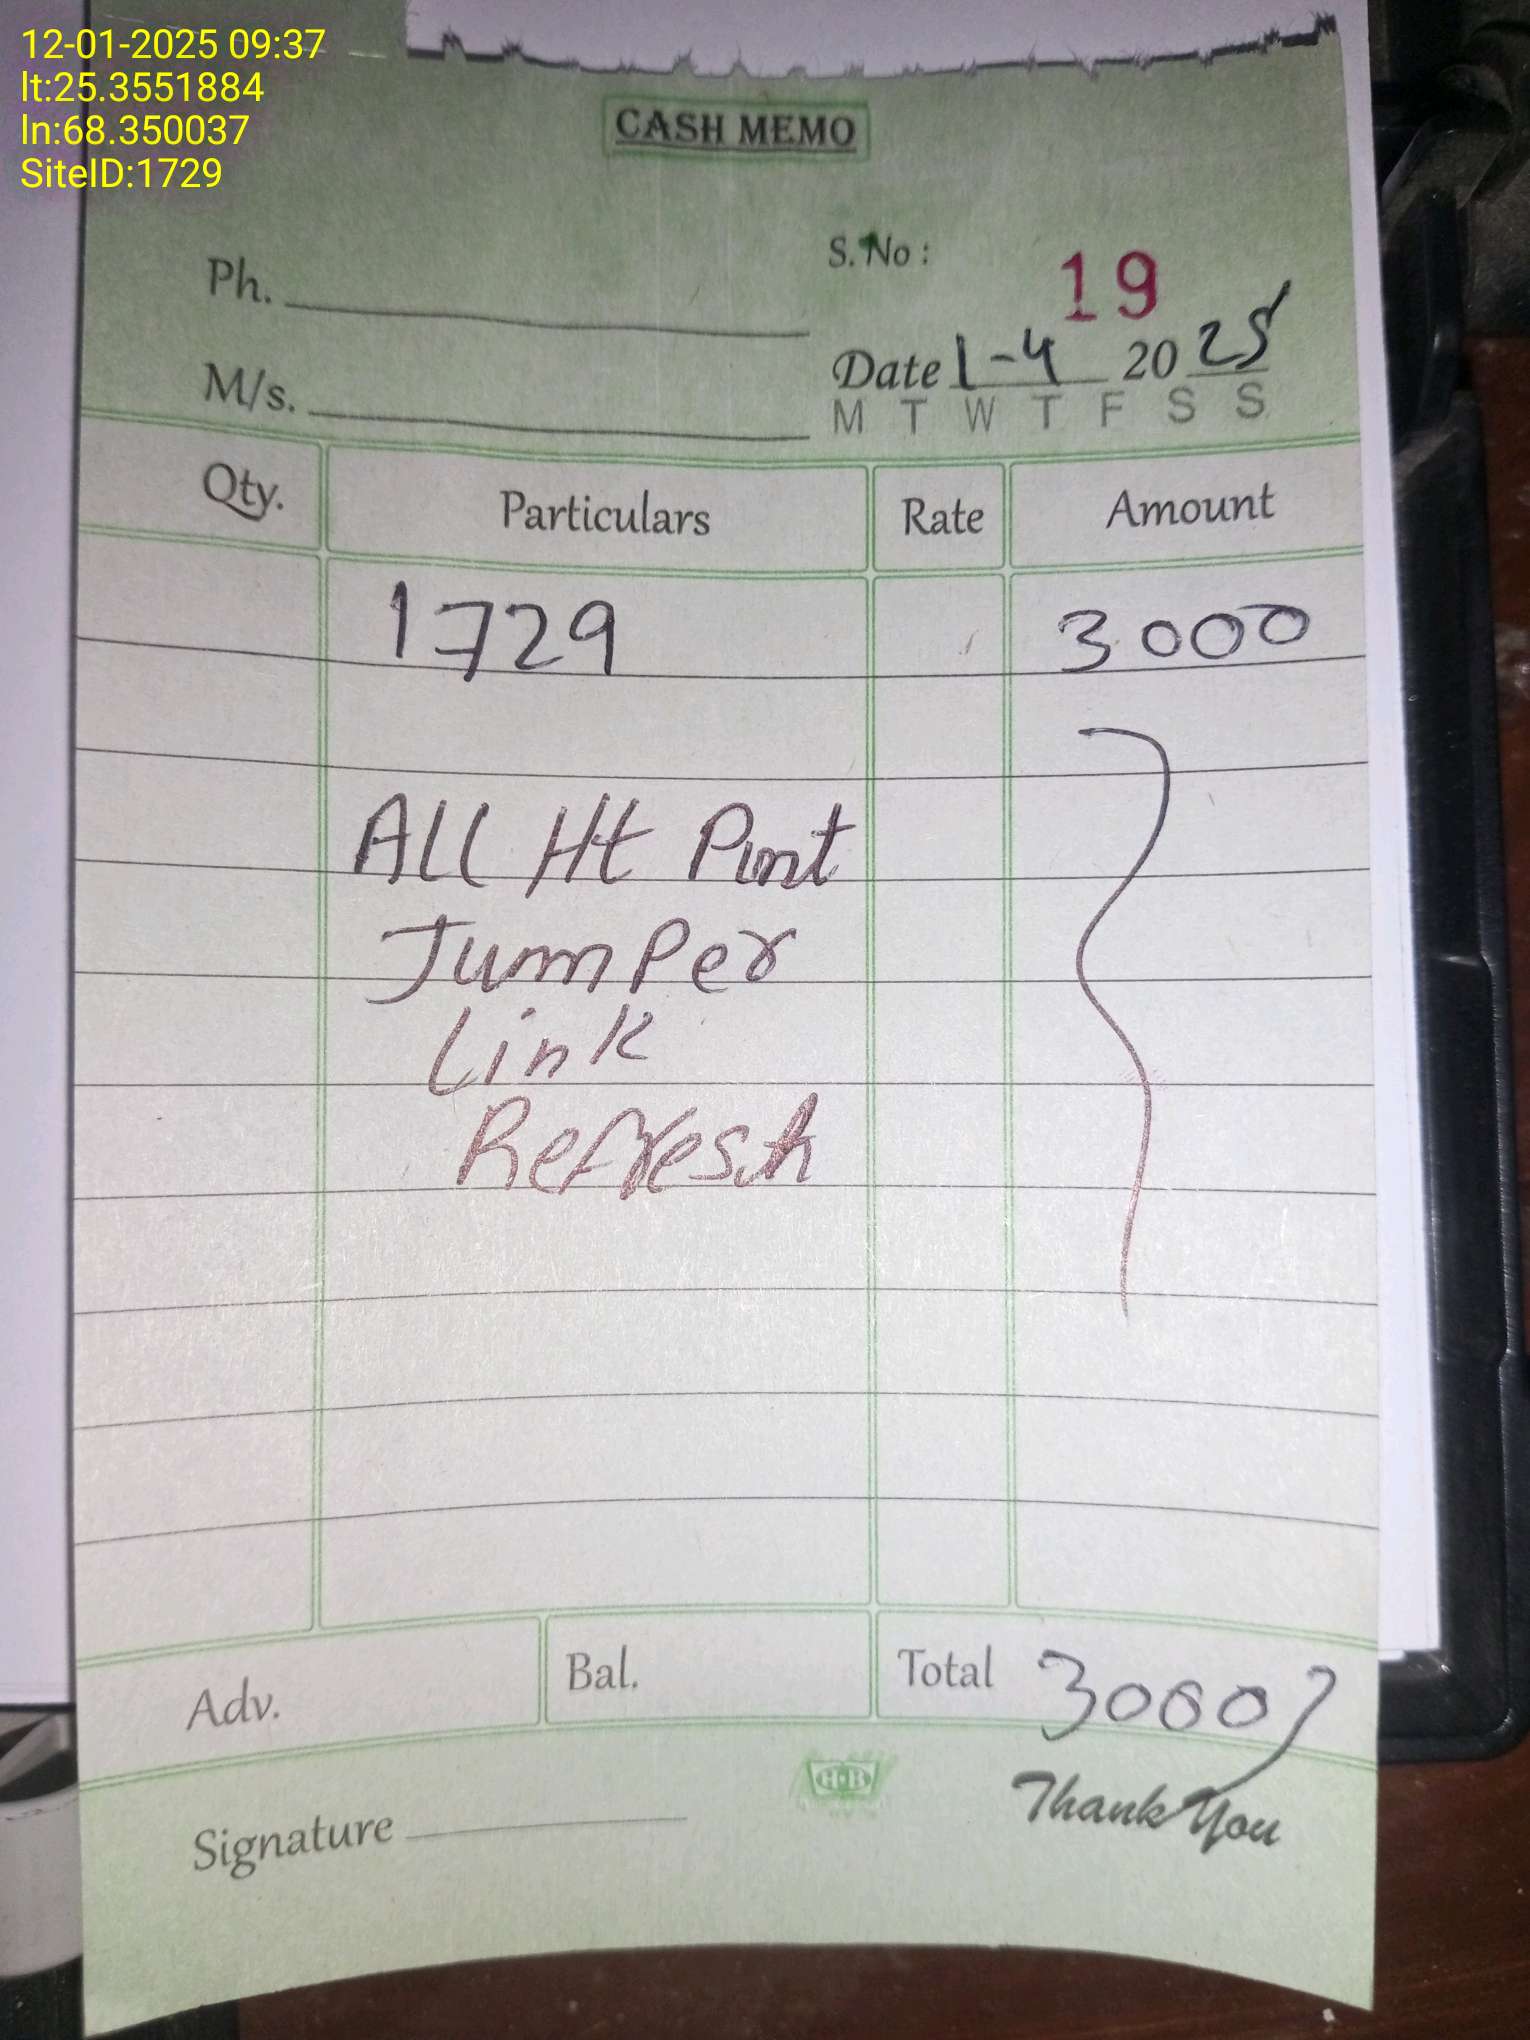 12-01-2025 09:37
lt:25.3551884
ln:68.350037
SiteID:1729
CASH MEMO
S. No : 19
Ph.
Date 1-4 2025
M/s.
M T W T F S S
Qty. Particulars Rate Amount
1729 3000
All Ht Pint
JumPer
Link
Refresh
Adv. Bal. Total 3000
H·B
Thank You
Signature